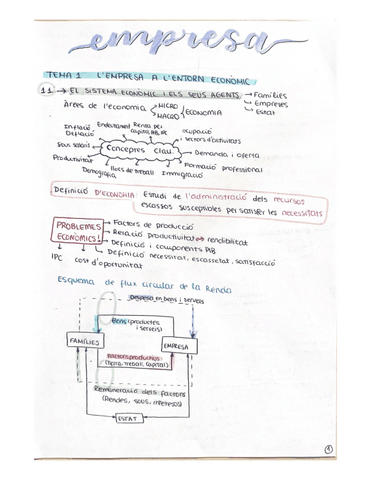 empresa
TEMA 1 L'EMPRESA A L'ENTORN ECONÒMIC
1.1 → EL SISTEMA ECONÒMIC I ELS SEUS AGENTS → Famílies
→ Empreses
→ Estat
Àrees de l'economia MICRO
MACRO ECONOMIA
Inflació Endeutament Renta per ocupació
Deflació capital, PIB, IPC sectors d'activitats
Sous salaris Conceptes Clau Demanda i oferta
Productivitat Formació professional
Demografia llocs de treball Immigració
Definició D'ECONOMIA: Estudi de l'administració dels recursos
escassos susceptibles per satisfer les necessitats
PROBLEMES ECONÒMICS!
→ Factors de producció
→ Relació productivitat → rendibilitat
→ Definició i components PIB
→ Definició necessitat, escassetat, satisfacció
IPC cost d'oportunitat
Esquema de flux circular de la Renda
Despesa en bens i serveis
Bens (productes
i serveis)
FAMÍLIES
EMPRESA
Factors productius
(terra, treball, capital)
Remuneració dels factors
(Rendes, sous, interessos)
ESTAT
1